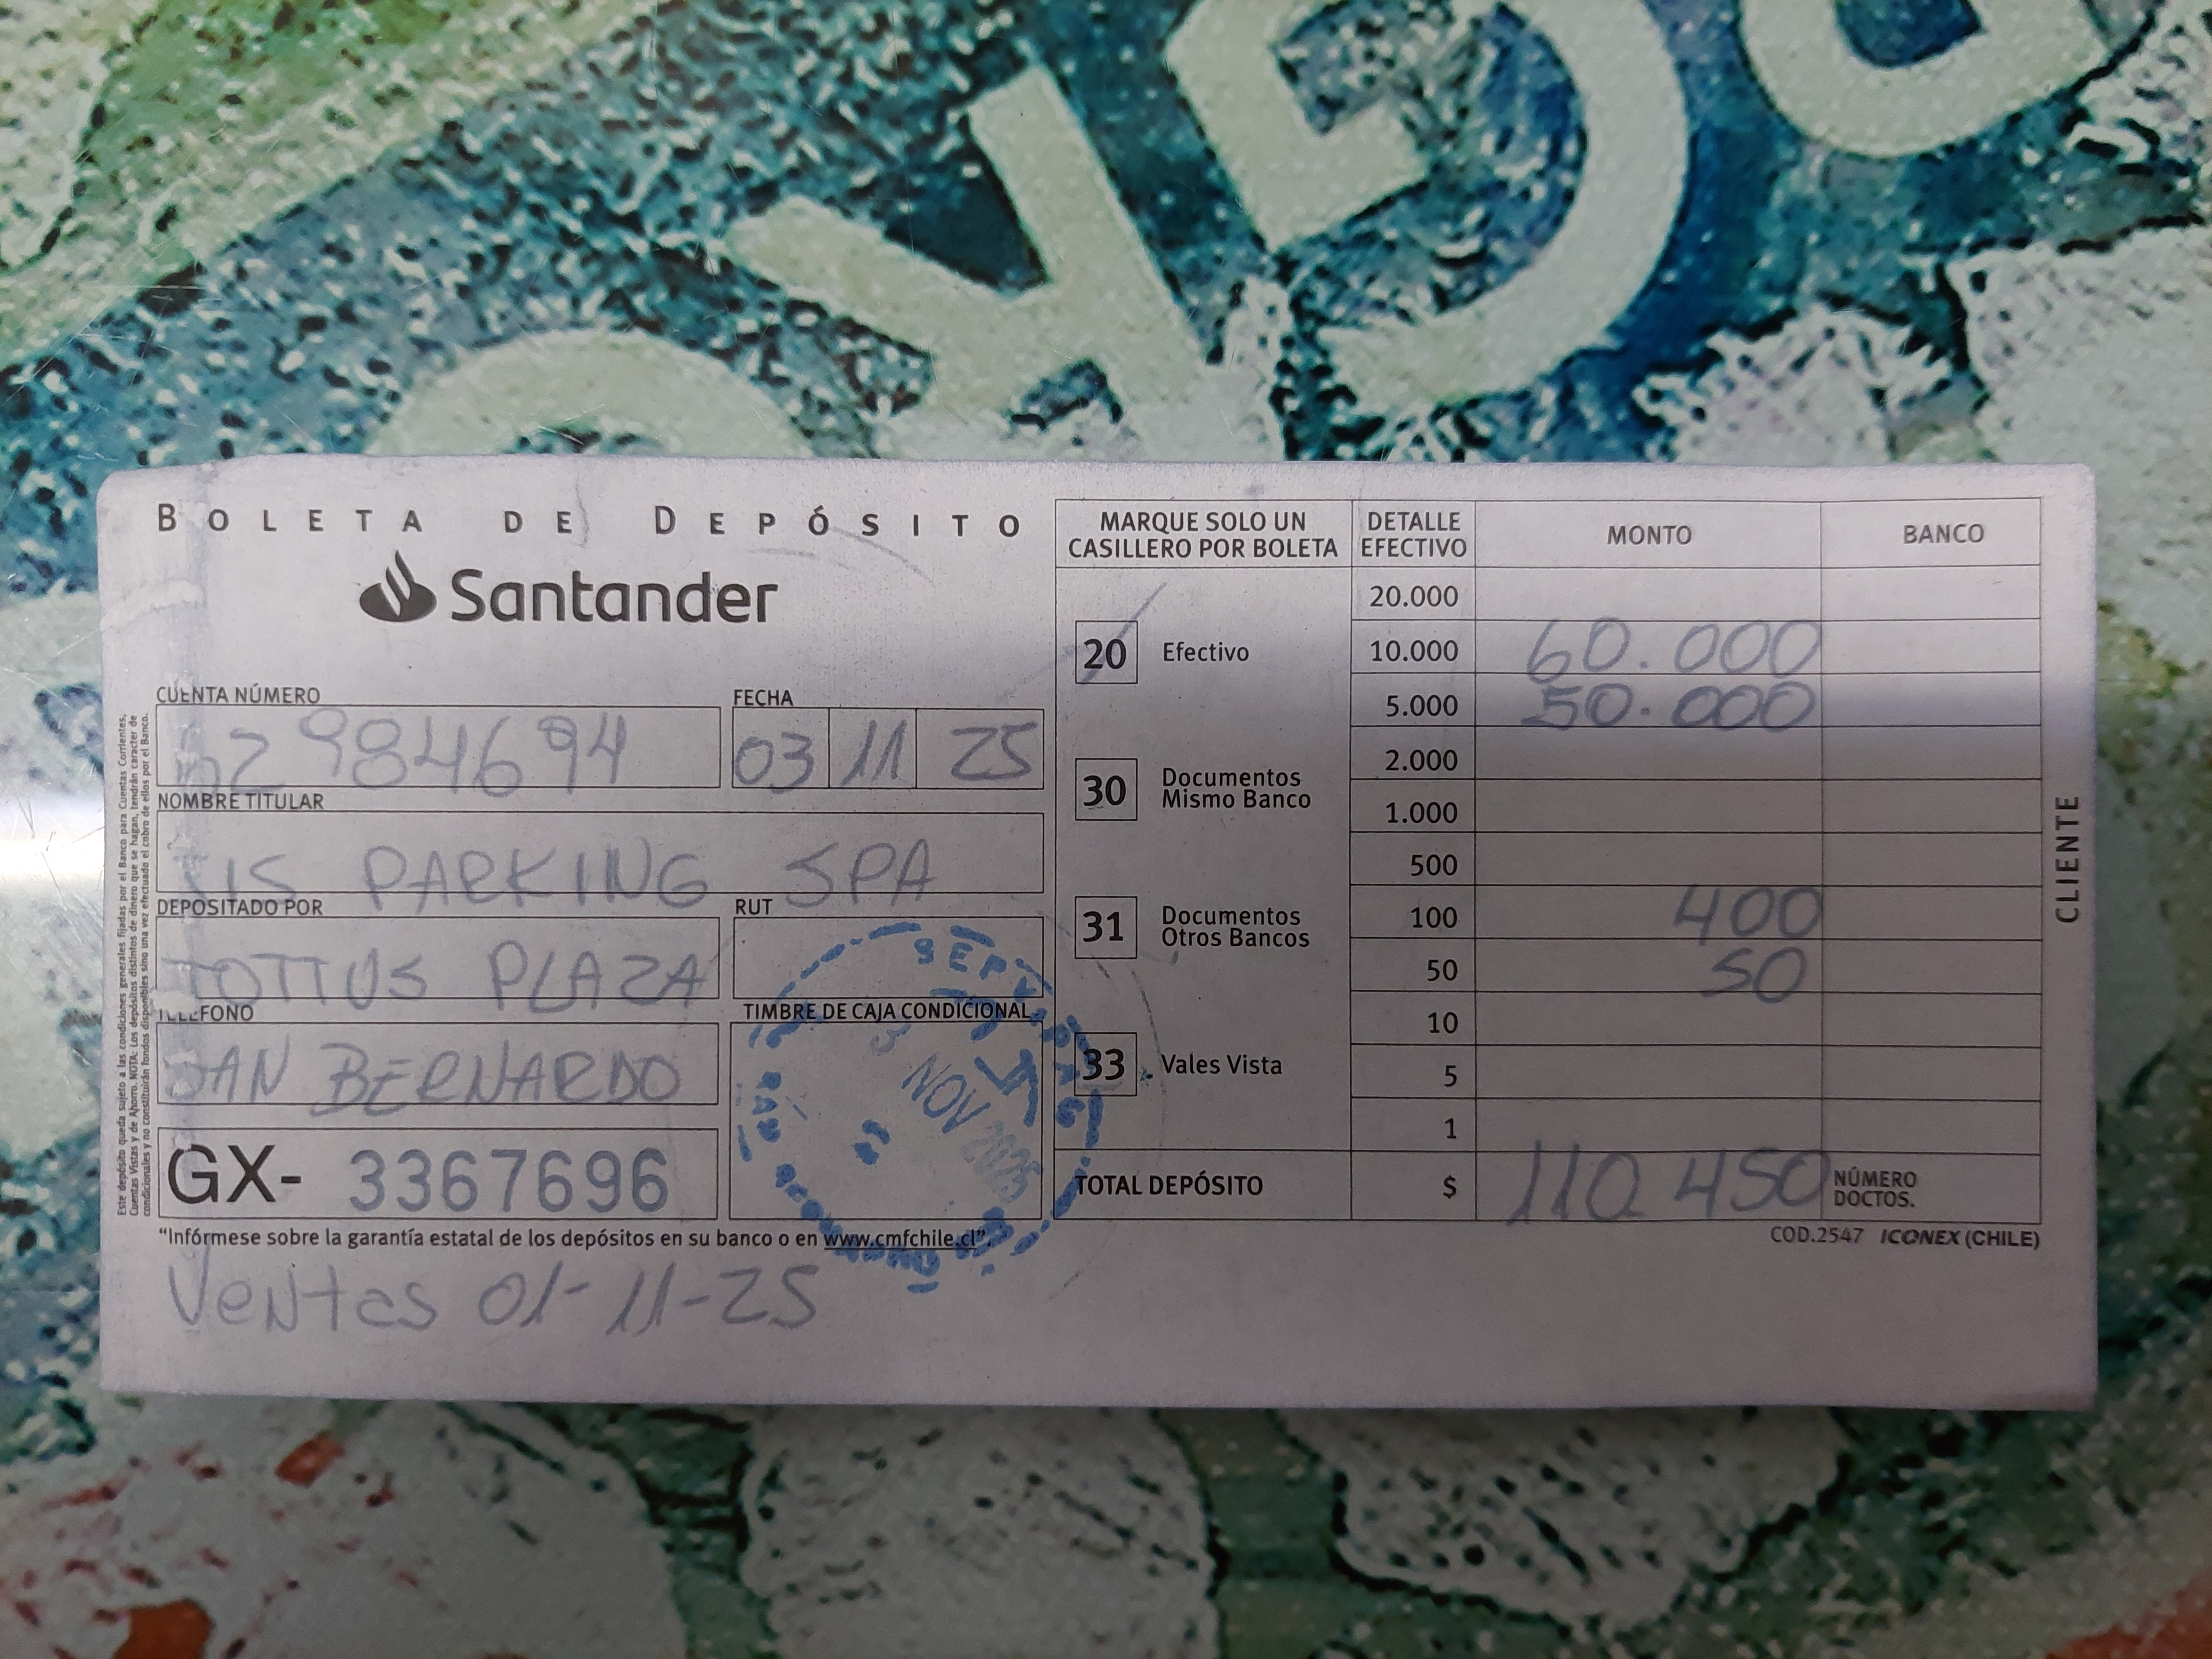 BOLETA DE DEPÓSITO
Santander
CUENTA NÚMERO
2984694
FECHA
03 11 25
NOMBRE TITULAR
SIS PARKING SPA
DEPOSITADO POR
TOTTUS PLAZA
RUT
TELÉFONO
SAN BERNARDO
TIMBRE DE CAJA CONDICIONAL
3 NOV 2025
GX- 3367696
"Infórmese sobre la garantía estatal de los depósitos en su banco o en www.cmfchile.cl".
Ventas 01-11-25
MARQUE SOLO UN
CASILLERO POR BOLETA
20 Efectivo
30 Documentos
Mismo Banco
31 Documentos
Otros Bancos
33 Vales Vista
DETALLE
EFECTIVO
MONTO
BANCO
20.000
10.000 60.000
5.000 50.000
2.000
1.000
500
100 400
50 50
10
5
1
TOTAL DEPÓSITO $ 110.450
NÚMERO
DOCTOS.
COD.2547 ICONEX (CHILE)
CLIENTE
Este depósito queda sujeto a las condiciones generales fijadas por el Banco para Cuentas Corrientes,
Cuentas Vistas y de Ahorro. NOTA: Los depósitos distintos de dinero que se hagan, tendrán caracter de
condicionales y no constituirán fondos disponibles sino una vez efectuado el cobro de ellos por el Banco.